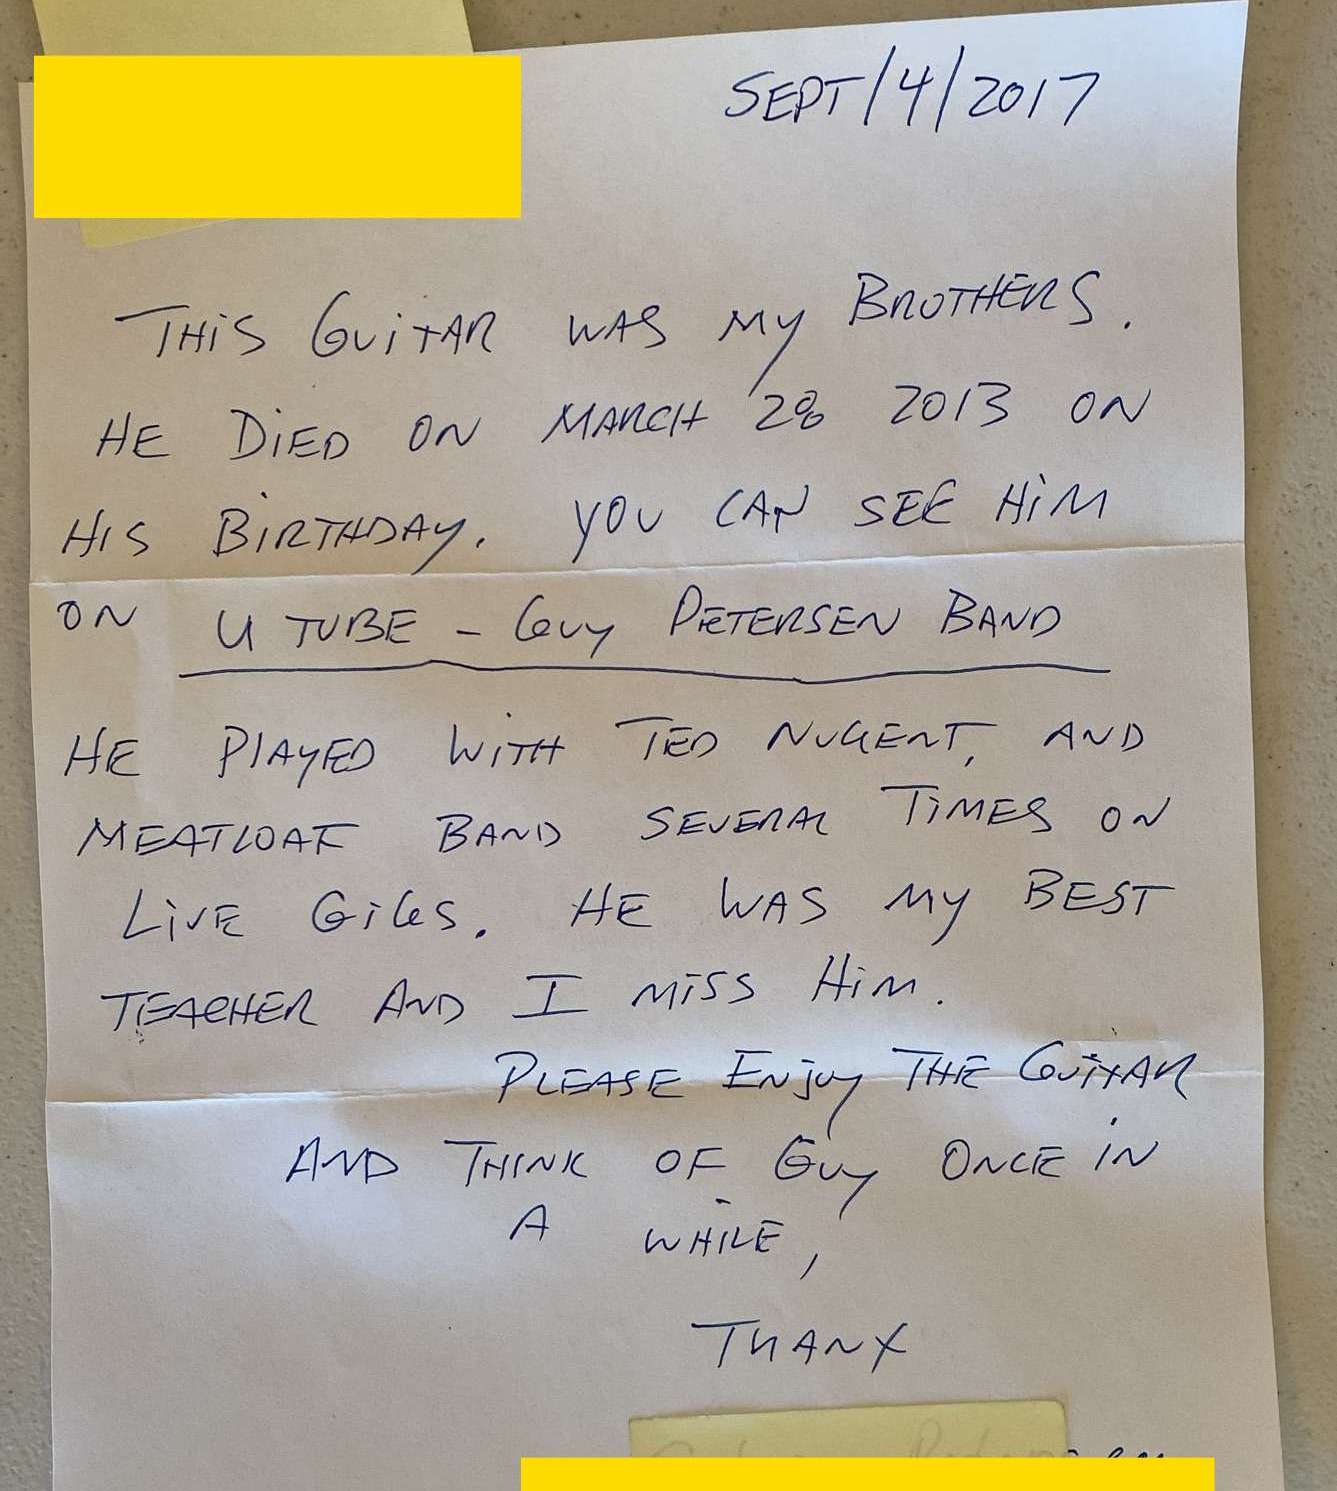 SEPT/4/2017
THIS GUITAR WAS MY BROTHERS.
HE DIED ON MARCH 28 2013 ON
HIS BIRTHDAY. YOU CAN SEE HIM
ON U TUBE - GUY PETERSEN BAND
HE PLAYED WITH TED NUGENT, AND
MEATLOAF BAND SEVERAL TIMES ON
LIVE GIGS. HE WAS MY BEST
TEACHER AND I MISS HIM.
PLEASE ENJOY THE GUITAR
AND THINK OF GUY ONCE IN
A WHILE,
THANX